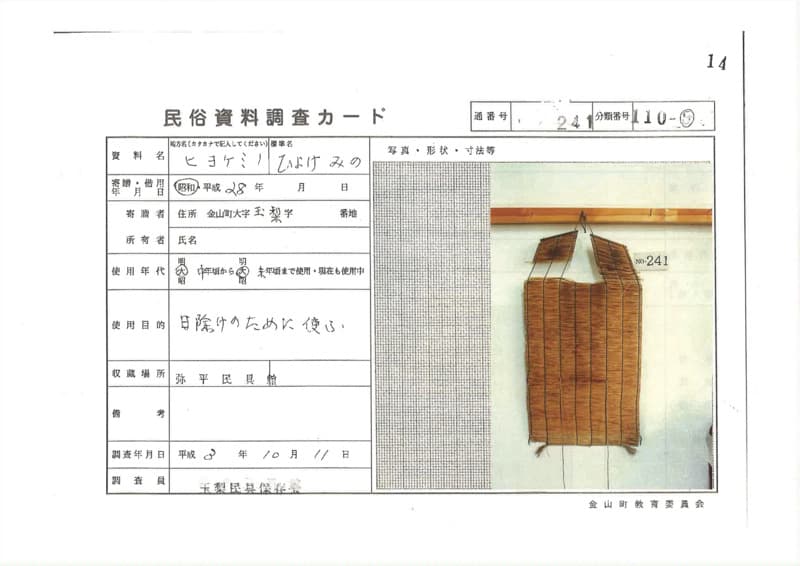 14
民俗資料調査カード
通番号 241 分類番号 110-
資料名
地方名(カタカナで記入してください) 標準名
ヒヨケミノ ひよけみの
写真・形状・寸法等
寄贈・借用年月日 昭和・平成 28年 月 日
寄贈者 住所 金山町大字 玉梨 字 番地
所有者 氏名
使用年代 明大昭 中年頃から 明大昭 末年頃まで使用・現在も使用中
使用目的 日除けのために使ふ
収蔵場所 弥平民具館
備考
調査年月日 平成 8年 10月 11日
調査員 玉梨民具保存会
NO.241
金山町教育委員会